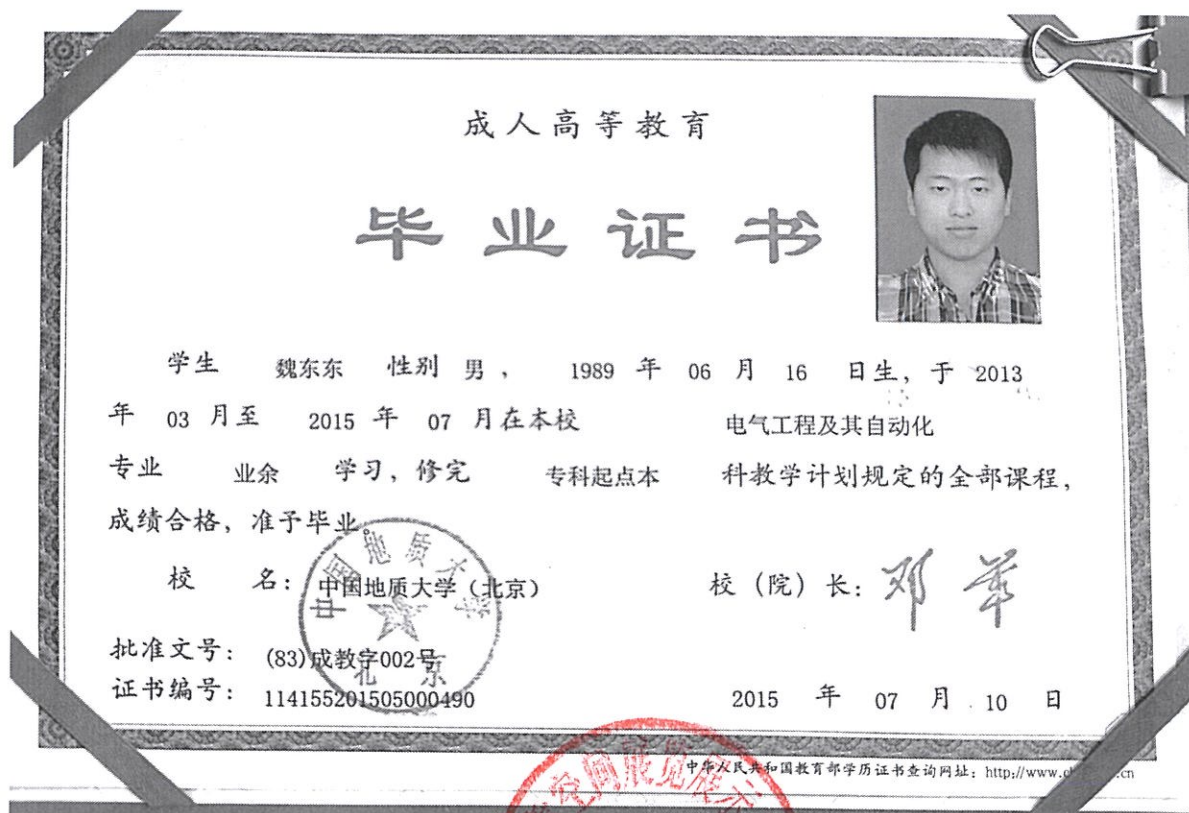 成人高等教育
毕业证书
学生 魏东东 性别 男， 1989 年 06 月 16 日生，于 2013
年 03 月至 2015 年 07 月在本校 电气工程及其自动化
专业 业余 学习，修完 专科起点本 科教学计划规定的全部课程，
成绩合格，准予毕业。
校 名：中国地质大学（北京） 校（院）长：邓军
中国地质大学
北京
批准文号：(83)成教字002号
证书编号：114155201505000490 2015 年 07 月 10 日
中华人民共和国教育部学历证书查询网址：http://www.
空间展览展示